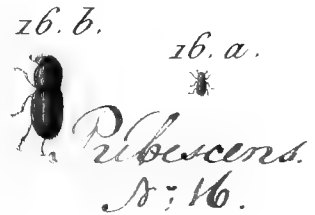 16. b.
16. a.
Pubescens.
N: 16.